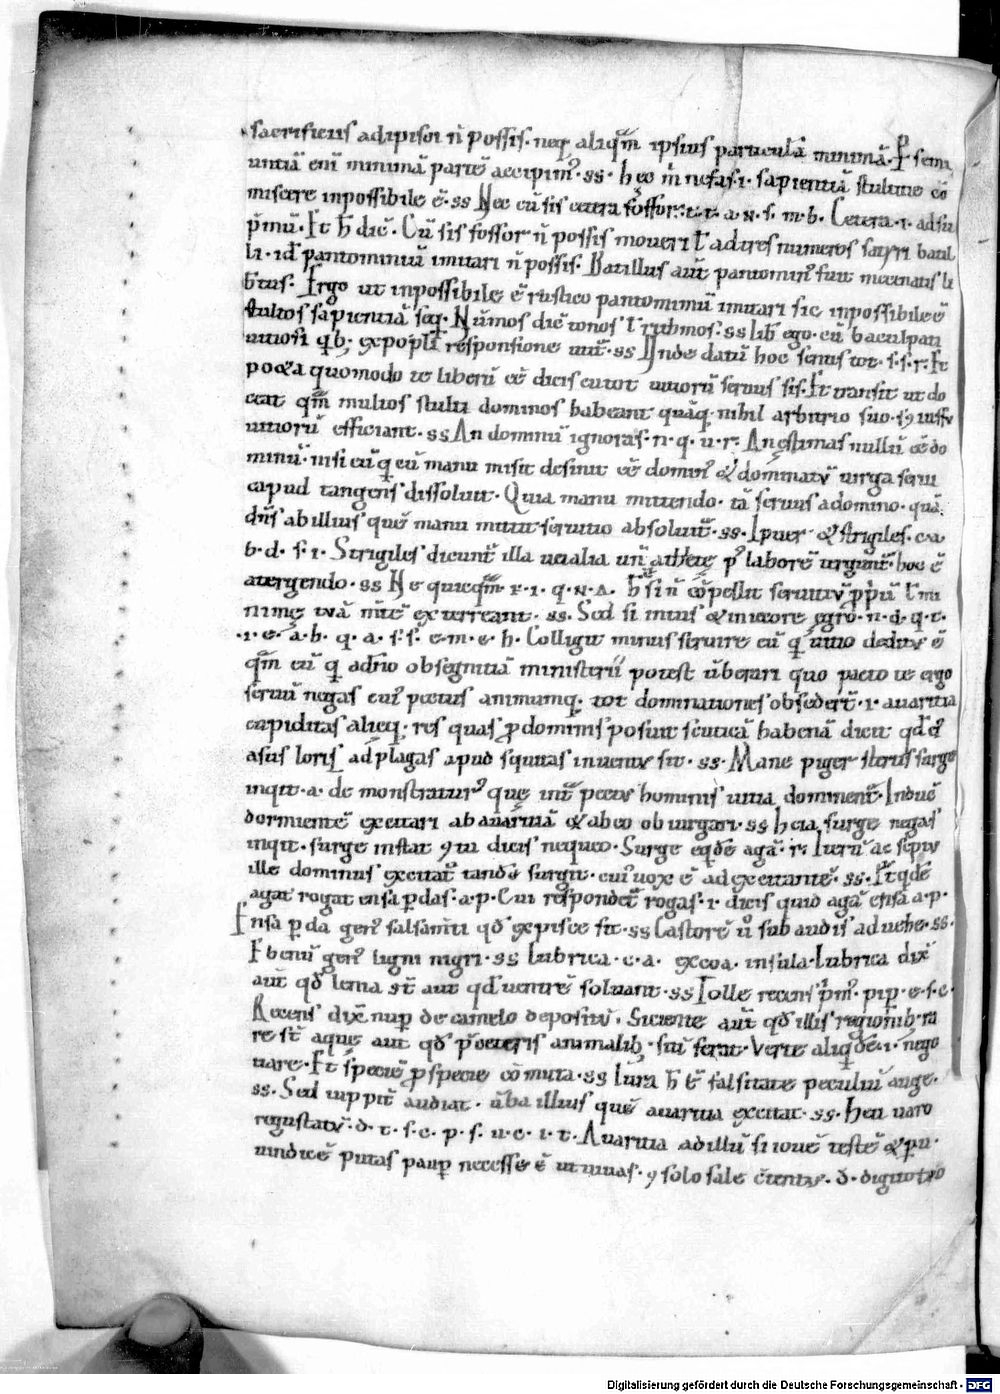 sacrificiis adipisci n̄ possis. neq; aliqm̄ ipsius particulā minimā. P̄ semi
unciā eni minimā partē accipim᾽. ss. h̨ec m̄ nefas. i. sapientiā stulticie cō
miscere inpossibile ē. ss Nec cū sis cetera fossor. t. t. a. n. s. m. b. Cetera. i. ad su
p̄mū. Et h̄ dic̄. Cū sis fossor n̄ possis moveri t̄ ad tres numeros satyri batil
li. id᷒ pantomimū imitari n̄ possis. Batillus aut̄ pantomim᾽ fuit mecenatis li
b̄tus. Ergo ut inpossibile ē rustico pantomimū imitari sic inpossibile ē
stultos sapientiā seq. Nūmos dic̄ tonos t̄ rithmos. ss lib̄ ego. cū baculpati
uitiosi q̄ b; ex popli responsione utit̄. ss Unde datū hoc senus tot. s. s. r. Et
poeta quomodo te liberū eē dicis cū tot uitiorū seruus sis. Et transit ut do
ceat qm̄ multos stulti dominos habeant quāq; nihil arbitrio suo. s; iussu
uitiorū efficiant. ss An dominū ignoras. n. q. u. r. An estimas nullū eē do
minū. nisi eū q eū manu misit desinit eē domin᾽ & dominatū uirga serui
capud tangens dissoluit. Quia manu mittendo. tā seruus a domino. quā
dn̄s ab illius quē manu mittit seruitio absoluit̄. ss. I puer & strigiles. c. a
b. d. s. i. Strigiles dicunt̄ illa uialia un̄ athlete p᾽ laborē urgunt̄. hoc ē
atergendo. ss Ne quicqm̄. x. i. q. n. a. h̄ si n̄ cōpellit seruitiū pp̄riū t̄ mi
nime tuā mēte exterreant. ss. Sed si intus & in iecore egro. n. d. q. t.
.i. e. a. h. q. a. s. s. e. m. e. h. Colligit minus seruire eū q uitio deditus ē
qm̄ eū q ad n̄o obsequiū ministerii potest ūberari quo pacto te ergo
seruū negas cui᾽ pectus animumq; tot dominationes obseder̄t. i. auaritia
cupiditas alieq; res quas p dominis posuit scuticā habenā dicit qd᷒ ē
asus loris ad plagas apud squitas inuent᾽ sit. ss. Mane piger stertis surge
inqit. a. demonstratur᾽ que int̄ pect᾽ hominis uitia dominent̄. Inducē
dormientē excitari ab auaritiā & ab eo obiurgari. ss heia. surge negas
inqit. surge instat. 9tu dicis nequeo. Surge eqdē agā. r. Iterū ac sepi᾽
ille dominus excitat̄ tandē surgit. cui᾽ uox ē ad excitantē. ss. Et qdē
agat rogat en saperdas. a. p. Cui respondet̄ rogas. i. dicis quid agā en sa a. p
Ensa p da gen᾽ salsam̄ti qd̄ expisce fit. ss Castorē ū sub audis aduehe. ss.
Ebenū gen᾽ ligni nigri. ss lubrica. c. a. ex coa. insula. Lubrica dix̄
aut̄ qd̄ lenia st̄ aut qd̄ uentrē soluant. ss Tolle recens p̄m᾽. pip̄. e. s. c.
Recens dix̄ nup̄ de camelo depositū. Siciente aut̄ qd̄ illis regionib; ra
re st̄ aque aut qd̄ p᾽ ceteris animalib; siti ferat. Verte aliqd̄ ē. i. nego
tiare. Et speciē p specie cōmuta. ss Iura h̄ ē falsitate peculiū auge.
ss. Sed iuppit̄ audiat. ūba illius quē auaritia excitat. ss. Heu uaro
regustatū. d. t. s. c. p. s. u. c. i. t. Auaritia ad illū si iouē testē & piū.
uindicē putas paup̄ necesse ē ut uiuas. 9 solo sale c̄tent᾽. d. digito tro
Digitalisierung gefördert durch die Deutsche Forschungsgemeinschaft - DFG